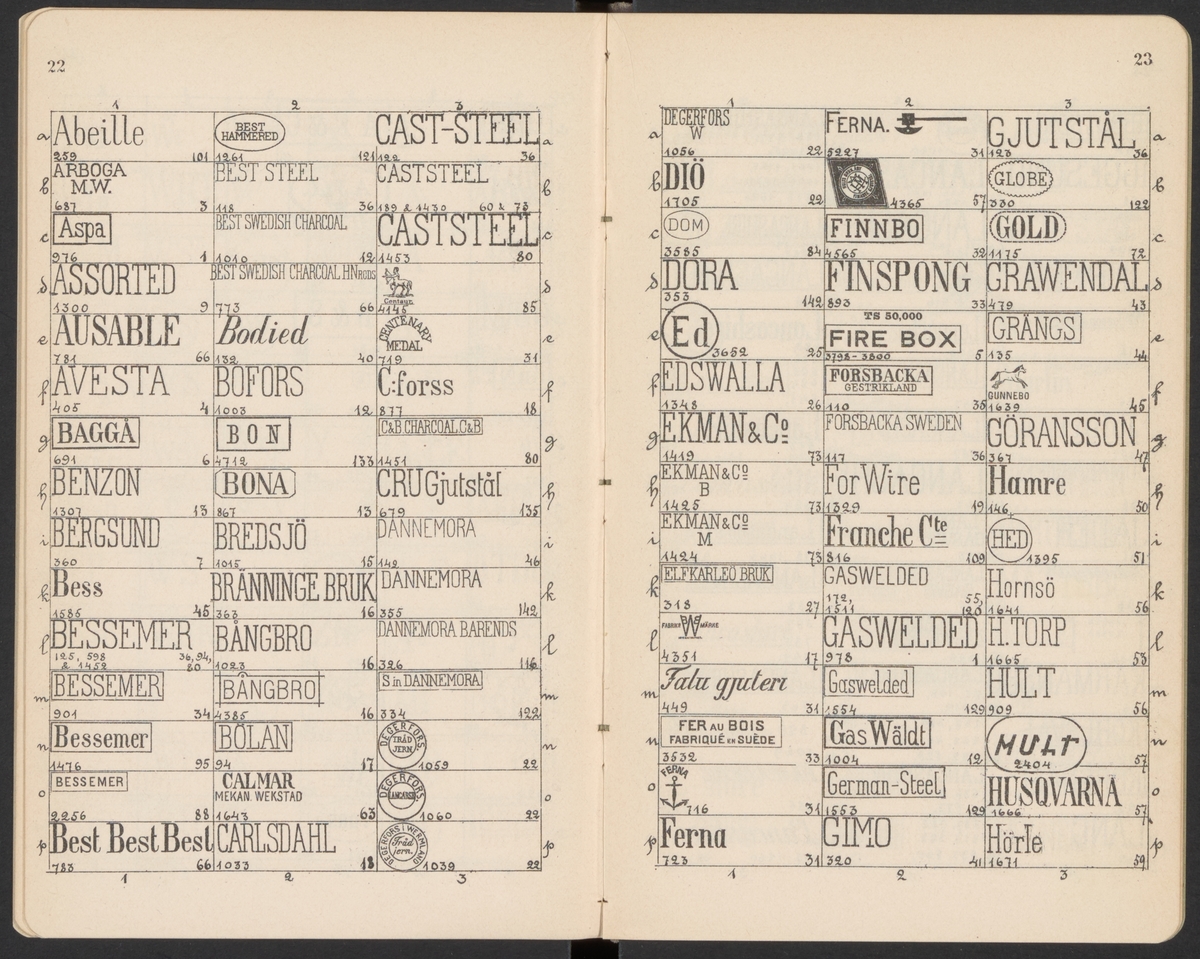 22
1 2 3
a Abeille
259 101
BEST
HAMMERED
1261 121
CAST-STEEL a
122 36
b ARBOGA
M.W.
687 3
BEST STEEL
118 36
CASTSTEEL b
189 & 1430 60 & 73
c Aspa
976 1
BEST SWEDISH CHARCOAL
1010 12
CASTSTEEL c
1453 80
d ASSORTED
1300 9
BEST SWEDISH CHARCOAL HN RODS
773 66
Centaur d
4146 85
e AUSABLE
781 66
Bodied
132 40
CENTENARY
MEDAL e
719 31
f AVESTA
405 4
BOFORS
1003 12
C:forss f
877 18
g BAGGÅ
691 6
BON
4712 133
C&B CHARCOAL.C&B g
1451 80
h BENZON
1307 13
BONA
867 13
CRU Gjutstål h
679 135
i BERGSUND
360 7
BREDSJÖ
1015 15
DANNEMORA i
142 46
k Bess
1585 45
BRÄNNINGE BRUK
363 16
DANNEMORA k
355 142
l BESSEMER
125, 598 36, 94,
& 1452 80
BÅNGBRO
1023 16
DANNEMORA BARENDS l
326 116
m BESSEMER
901 34
BÅNGBRO
4385 16
S in DANNEMORA m
334 122
n Bessemer
1476 95
BÖLAN
94 17
DEGERFORS
TRÅD
JERN. n
1059 22
o BESSEMER
2256 88
CALMAR
MEKAN. WEKSTAD
1643 63
DEGERFORS
LANCASH. o
1060 22
p Best Best Best
783 66
CARLSDAHL
1033 18
DEGERFORS I WERMLAND
Tråd
jern. p
1039 22
1 2 3
23
1 2 3
a DEGERFORS
W
1056 22
FERNA.
5227 31
GJUTSTÅL a
123 36
b DIÖ
1705 22
4365 57
GLOBE b
330 122
c DOM
3585 84
FINNBO
4565 32
GOLD c
1175 72
d DORA
353 142
FINSPONG
893 33
GRAWENDAL d
479 43
e Ed
3652 25
TS 50,000
FIRE BOX
3798-3800 5
GRÄNGS e
135 44
f EDSWALLA
1348 26
FORSBACKA
GESTRIKLAND
110 35
GUNNEBO f
1639 45
g EKMAN & Co
1419 73
FORSBACKA SWEDEN
117 36
GÖRANSSON g
367 47
h EKMAN & Co
B
1425 73
For Wire
1329 19
Hamre h
146, 50
i EKMAN & Co
M
1424 73
Franche Cte
816 109
HED i
1395 51
k ELFKARLEÖ BRUK
318 27
GASWELDED
172, 55,
1511 120
Hornsö k
1641 56
l FABRIKS W MÄRKE
4351 17
GASWELDED
978 1
H.TORP l
1665 53
m Falu gjuteri
449 31
Gaswelded
1554 129
HULT m
909 56
n FER AU BOIS
FABRIQUÉ EN SUÈDE
3532 33
Gas Wäldt
1004 12
HULT n
2404 57
o FERNA
716 31
German-Steel
1553 129
HUSQVARNA o
1666 57
p Ferna
723 31
GIMO
320 41
Hörle p
1671 59
1 2 3